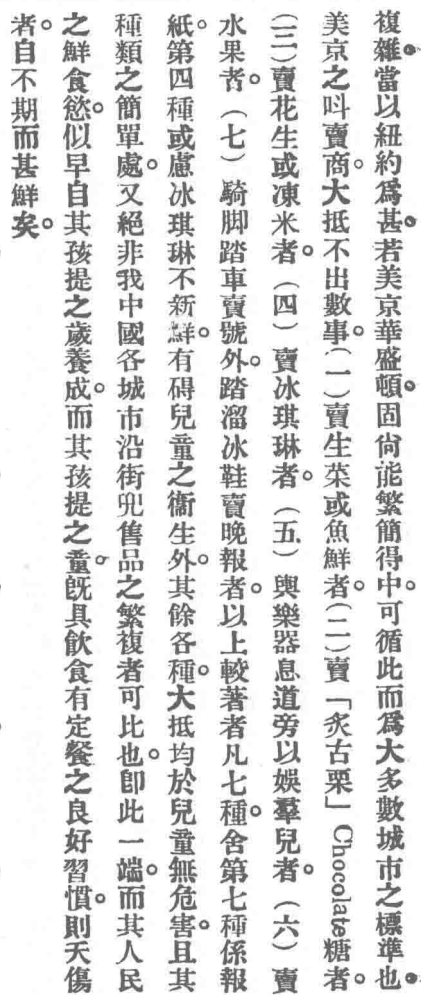 複雜。當以紐約爲甚。若美京華盛頓。固尙能繁簡得中。可循此而爲大多數城市之標準也。
美京之呌賣商。大抵不出數事。（一）賣生菜或魚鮮者。（二）賣「炙古栗」Chocolate糖者。
（三）賣花生或凍米者。（四）賣冰琪琳者。（五）輿樂器息道旁以娛羣兒者。（六）賣
水果者。（七）騎脚踏車賣號外。踏溜冰鞋賣晚報者。以上較著者凡七種。舍第七種係報
紙。第四種或慮冰琪琳不新鮮。有碍兒童之衞生外。其餘各種。大抵均於兒童無危害。且其
種類之簡單處。又絕非我中國各城市沿街兜售品之繁複者可比也。卽此一端。而其人民
之鮮食慾。似早自其孩提之歲養成。而其孩提之童。旣具飲食有定餐之良好習慣。則天傷
者。自不期而甚鮮矣。